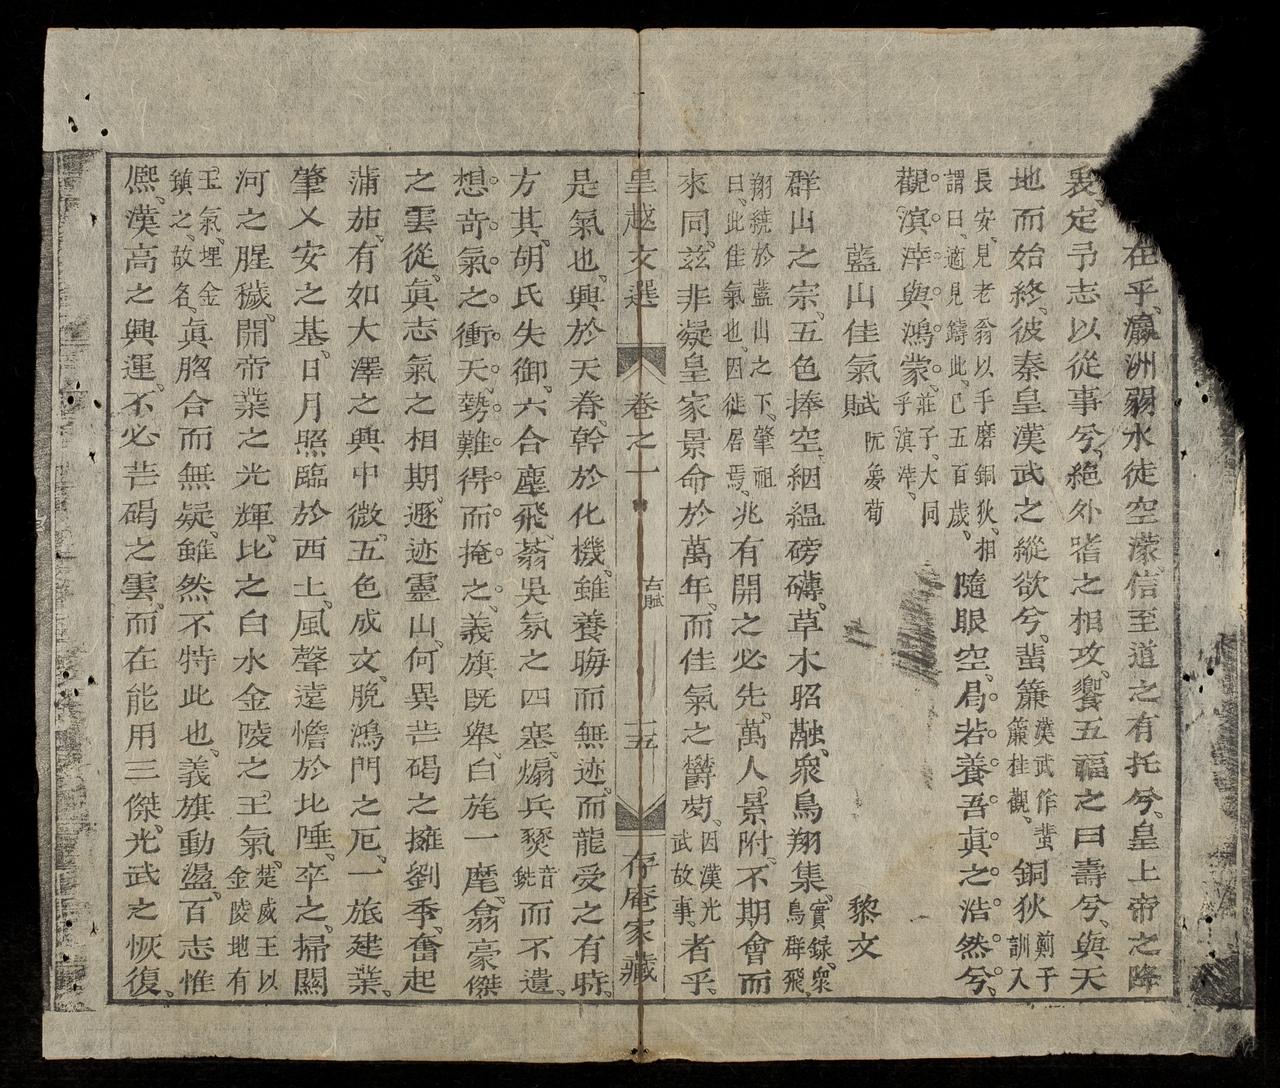 在乎、瀛洲弱水徒空濛、信至道之有托兮、皇上帝之降
衷、定予志以從事兮、絶外嗜之相攻、饗五福之曰壽兮、與天
地而始終、彼秦皇漢武之縱欲兮、蜚簾漢武作蜚簾桂觀、銅狄薊子訓入
長安、見老翁以手磨銅狄、相謂曰、適見鑄此、已五百歲、隨眼空、局若養吾眞之浩然兮、
觀滇涬與鴻蒙乎、莊子、大同滇涬、
藍山佳氣賦 阮夢荀 黎文
群山之宗、五色捧空、絪縕磅礴、草木昭融、衆鳥翔集、實録、衆鳥群飛、
翔繞於藍山之下、肇祖曰、此佳氣也、因徙居焉、兆有開之必先、萬人景附、不期會而
來同、茲非凝皇家景命於萬年、而佳氣之欝葱、因漢光武故事、者乎、
皇越文選 卷之一 古賦 十五 存庵家藏
是氣也、興於天脊、幹於化機、雖養晦而無迹、而龍受之有時、
方其、胡氏失御、六合塵飛、蓊吳氛之四塞、煽兵燹音銑而不遺、
想奇氣之衝天、勢難得而掩之、義旗旣舉、白旄一麾、翕豪傑
之雲從、眞志氣之相期、遯迹靈山、何異芒碭之擁劉季、奮起
蒲茄、有如大澤之興中微、五色成文、脫鴻門之厄、一旅建業、
肇乂安之基、日月照臨於西土、風聲遠憺於比陲、卒之、掃關
河之腥穢、開帝業之光輝、比之白水金陵之王氣、楚威王以金陵地有
王氣、埋金鎮之、故名、眞脗合而無疑、雖然不特此也、義旗動盪、百志惟
熈、漢高之興運、不必芒碭之雲、而在能用三傑、光武之恢復、